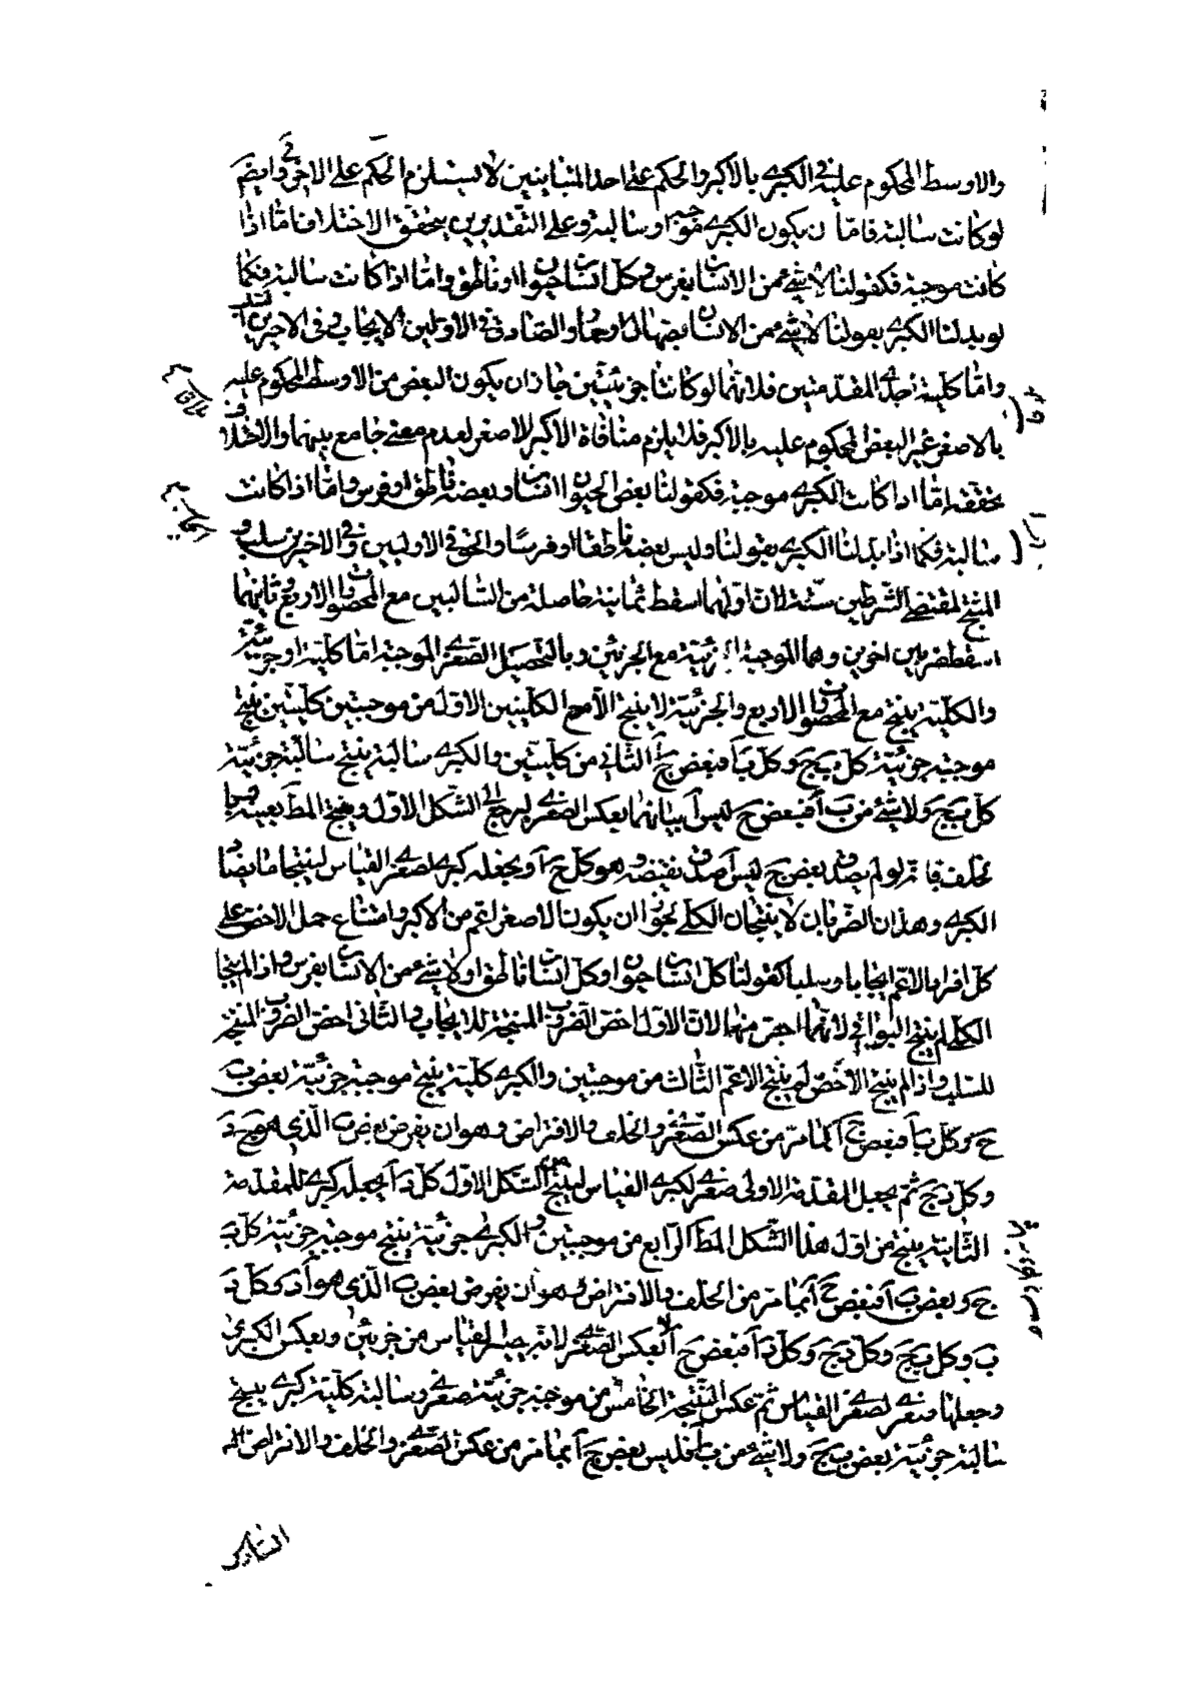 والاوسط المحكوم عليه فى الكبرى بالاكبر والحكم على احد المتباينين لا يستلزم الحكم على الاخر وايضم
لو كانت سالبة فامّا ان يكون الكبرى موجبة او سالبة وعلى التقديرين يتحقق الاختلاف امّا اذا
كانت موجبة فكقولنا لا شئ من الانسان بفرس وكل انسان حيوان او ناطق وامّا اذا كانت سالبة فكما
لو بدلنا الكبرى بقولنا لا شئ من الانسان بصهال او حمار والصادق فى الاولين الايجاب وفى الاخيرين السلب
وامّا كلية احدى المقدمتين فلانهما لو كانتا جزئيتين جاز ان يكون البعض من الاوسط المحكوم عليه
بالاصغر غير البعض المحكوم عليه بالاكبر فلا يلزم منافاة الاكبر للاصغر لعدم معنى جامع بينهما والاختلاف
يحققه امّا اذا كانت الكبرى موجبة فكقولنا بعض الحيوان انسان وبعضه ناطق او فرس وامّا اذا كانت
سالبة فكما اذا بدلنا الكبرى بقولنا وليس بعضه ناطقا او فرسا والحق فى الاوليين وفى الاخيرين سلب و
المنتج بمقتضى الشرطين ستة لان اولهما اسقط ثمانية حاصلة من السالبتين مع المحصورات الاربع وثانيهما
اسقط ضربين اخرين وهما الموجبة الجزئية مع الجزئيتين وبالتحصيل الصغرى الموجبة امّا كلية او جزئية
والكلية ينتج مع المحصورات الاربع والجزئية لا ينتج الا مع الكليتين الاول من موجبتين كليتين ينتج
موجبة جزئية كل ب ج وكل ب ا فبعض ج ا الثانى من كليتين والكبرى سالبة ينتج سالبة جزئية
كل ب ج ولا شئ من ب ا فبعض ج ليس ا بيانهما بعكس الصغرى ليرجع الى الشكل الاول وينتج المط بعينه وبا
لخلف فانه لو لم يصدق بعض ج ليس ا صدق نقيضه وهو كل ج ا ويجعله كبرى لصغرى القياس لينتجا ما يضاد
الكبرى وهذان الضربان لا ينتجان الكلى لجواز ان يكون الاصغر اعم من الاكبر وامتناع حمل الاخص على
كل افراد الاعم ايجابا وسلبا كقولنا كل انسان حيوان وكل انسان ناطق او لا شئ من الانسان بفرس واذا لم ينتجا
الكلى لم ينتج البواقى لانهما اخص منها لان الاول اخص الضروب المنتجة للايجاب والثانى اخص الضروب المنتجة
للسلب واذا لم ينتج الاخص لم ينتج الاعم الثالث من موجبتين والكبرى كلية ينتج موجبة جزئية بعض ب
ج وكل ب ا فبعض ج ا كما مرّ من عكس الصغرى والخلف والافتراض وهو ان يفرض بعض ب الذى هو ج د
وكل د ج ثم يجعل المقدمة الاولى صغرى لكبرى القياس لينتج من الشكل الاول كل د ا يجعله كبرى للمقدمة
الثانية ينتج من اول هذا الشكل المط الرابع من موجبتين والكبرى جزئية ينتج موجبة جزئية كل ب
ج وبعض ب ا فبعض ج ا بما مرّ من الخلف والافتراض وهو ان يفرض بعض ب الذى هو ا د فكل د
ب وكل ب ج وكل د ج وكل د ا فبعض ج ا لا بعكس الصغرى لانه يصير القياس من جزئيتين وبعكس الكبرى
وجعلها صغرى لصغرى القياس ثم عكس النتيجة الخامس من موجبة جزئية صغرى وسالبة كلية كبرى ينتج
سالبة جزئية بعض ب ج ولا شئ من ب ا فليس بعض ج ا بما مرّ من عكس الصغرى والخلف والافتراض
السادس